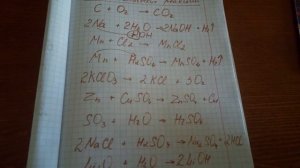 C + O₂ → CO₂
2Na + 2H₂O → 2NaOH + H₂↑
OH
Mn + Cl₂ → MnCl₂
Mn + H₂SO₄ → MnSO₄ + H₂↑
2KClO₃ → 2KCl + 3O₂
Zn + CuSO₄ → ZnSO₄ + Cu
SO₃ + H₂O → H₂SO₄
2NaCl + H₂SO₄ → Na₂SO₄ + 2HCl
Li₂O + H₂O → 2LiOH